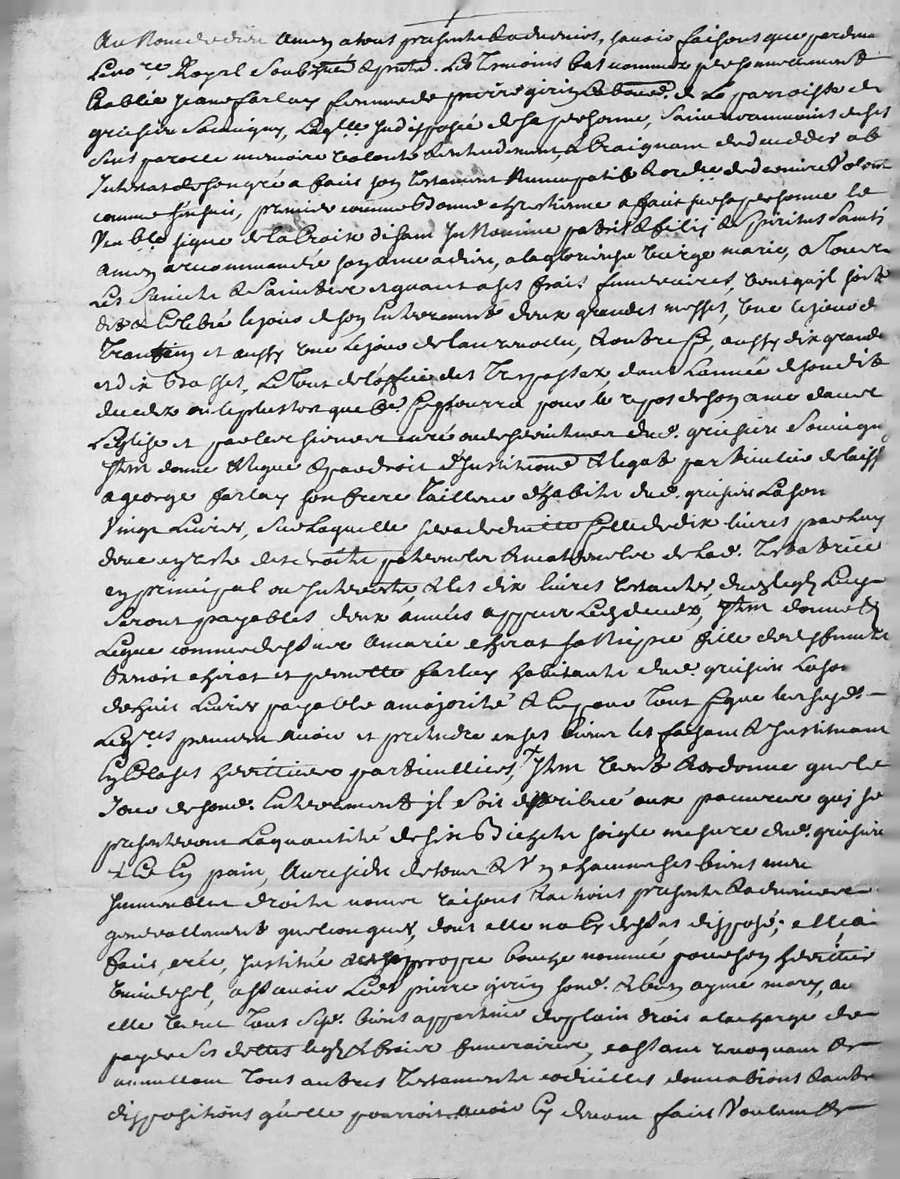 Au Nom de dieu Amen a tous presents & advenirs, scavoir faisons que pardeva
Le no.re Royal Soubzné & pnts. Les Temoins bas nommes personnellement
Establie Jeane farlay femme de pierre girin Labour. de La parroisse de
griesieu Savuigny, Laqlle Indisposée de sa personne, Saine neanmoins de ses
sens parolle memoire volonté & entendement, & Craignant de deceder ab
Intestat de son gré a fait son Testament Nuncupatif & ordre de derniere Volont
comme s'ensuit, premier comme Bonne chrestienne a fait sur sa personne le
Ven.ble signe de la Croix disant In Nomine patris & filij & Spiritus Sancti
Amen a recommandée son ame a dieu, a la glorieuse vierge marie, a Tous
Les Saincts & Sainctes et quant a ses frais funeraires, veut qu'il soit
dit & Celebré le jour de son Enterrement deux grandes messes, une le jour de
Trantain et aussy une Le jour de l'an revollu, & outre ce, aussy dix grandes
et dix Basses, Le Tout de l'office des Trespassez dans L'année de son dit
decedz ou le plustost que ce poura pour le repos de son ame dans
L'eglise et par les sieurs curé du d. griesieu Souvigny
Itm donne & legue & par droit d'Institution & legat particulier delaisse
a george farlay son frere Tailleur d'habits du d. griesieu La son
Vingt Livres, Sur Laquelle sera deduitte celle de dix livres par Luy
deue en reste des droits paternels & maternels de Lad. Testatrice
en principal ou Interests, & les dix livres restantes, dud legs Luy
Seront payables deux années apprez Led decedz, Itm donne &
Legue comme dessus a marie chirat sa Niepce fille de deffunct
Benoit chirat et pernette farlay habitante du d. griesieu La son
de huit Livres payable a majorité & ce pour Tout ce que les susd.
Leg.res peuvent avoir et pretendre en ses biens les faisant & Instituant
En Ce Ses heritiers particulliers, Itm veut & ordonne que le
Jour de sond. Enterrement il soit distribué aux pauvres qui se
presenteront La quantité de six Bichets soigle mesure dud. griesieu
& Ce En pain, Au residu de tous & Vns chacuns ses biens meu
Immeubles droits noms raisons & actions presents & advenirs
generallement quelconques, dont elle n'a cy dessus disposé; elle a
fait, créé, Institué de sa propre bouche nommé pour son heritier
universel, asscavoir Led. pierre girin sond. & bien aymé mary, au
elle veut Tous Sesd. biens appartenir de plain droit a la charge de
payer ses dettes legs & fraix funeraires, cassant revoquant &
annullant Tous autres Testaments codicilles donnations & autres
dispositions qu'elle pourroit avoir Cy devant fait Voulant &